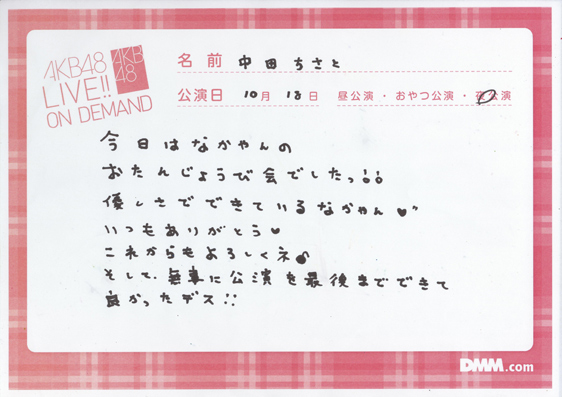 AKB48
LIVE!!
ON DEMAND
AKB
48
名前 中田ちさと
公演日 10月 18日 昼公演・おやつ公演・夜公演
今日はなかやんの
おたんじょうび会でしたっ!!
優しさでできているなかやん♥"
いつもありがとう♥
これからもよろしくネ♪
そして、無事に公演を最後までできて
良かったデス!!
DMM.com